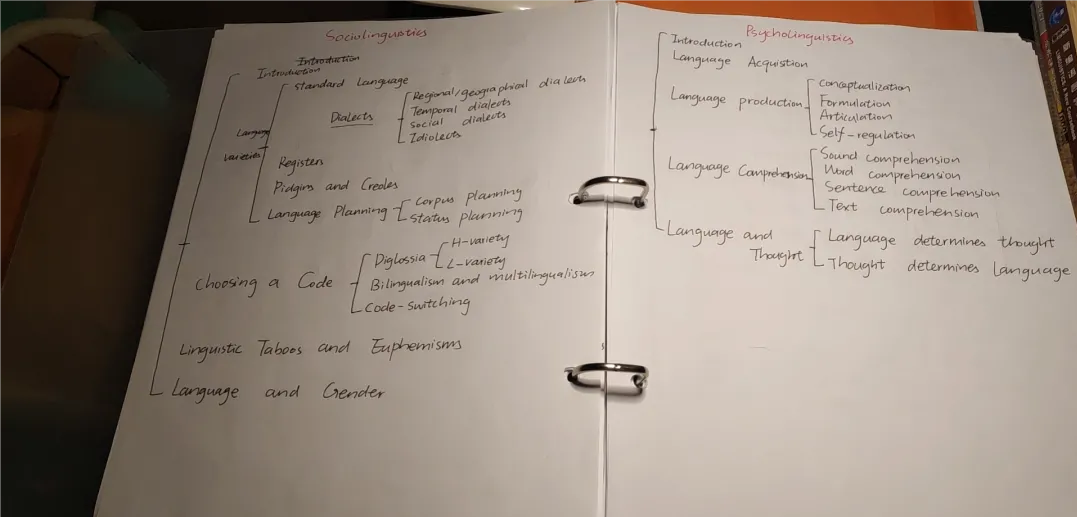 Sociolinguistics
Introduction
Introduction
Language
varieties
Standard Language
Dialects
Regional/geographical dialects
Temporal dialects
Social dialects
Idiolects
Registers
Pidgins and Creoles
Language Planning
Corpus planning
Status planning
Choosing a Code
Diglossia
H-variety
L-variety
Bilingualism and multilingualism
Code-switching
Linguistic Taboos and Euphemisms
Language and Gender
Psycholinguistics
Introduction
Language Acquistion
Language production
Conceptualization
Formulation
Articulation
Self-regulation
Language Comprehension
Sound comprehension
Word comprehension
Sentence comprehension
Text comprehension
Language and
Thought
Language determines thought
Thought determines language